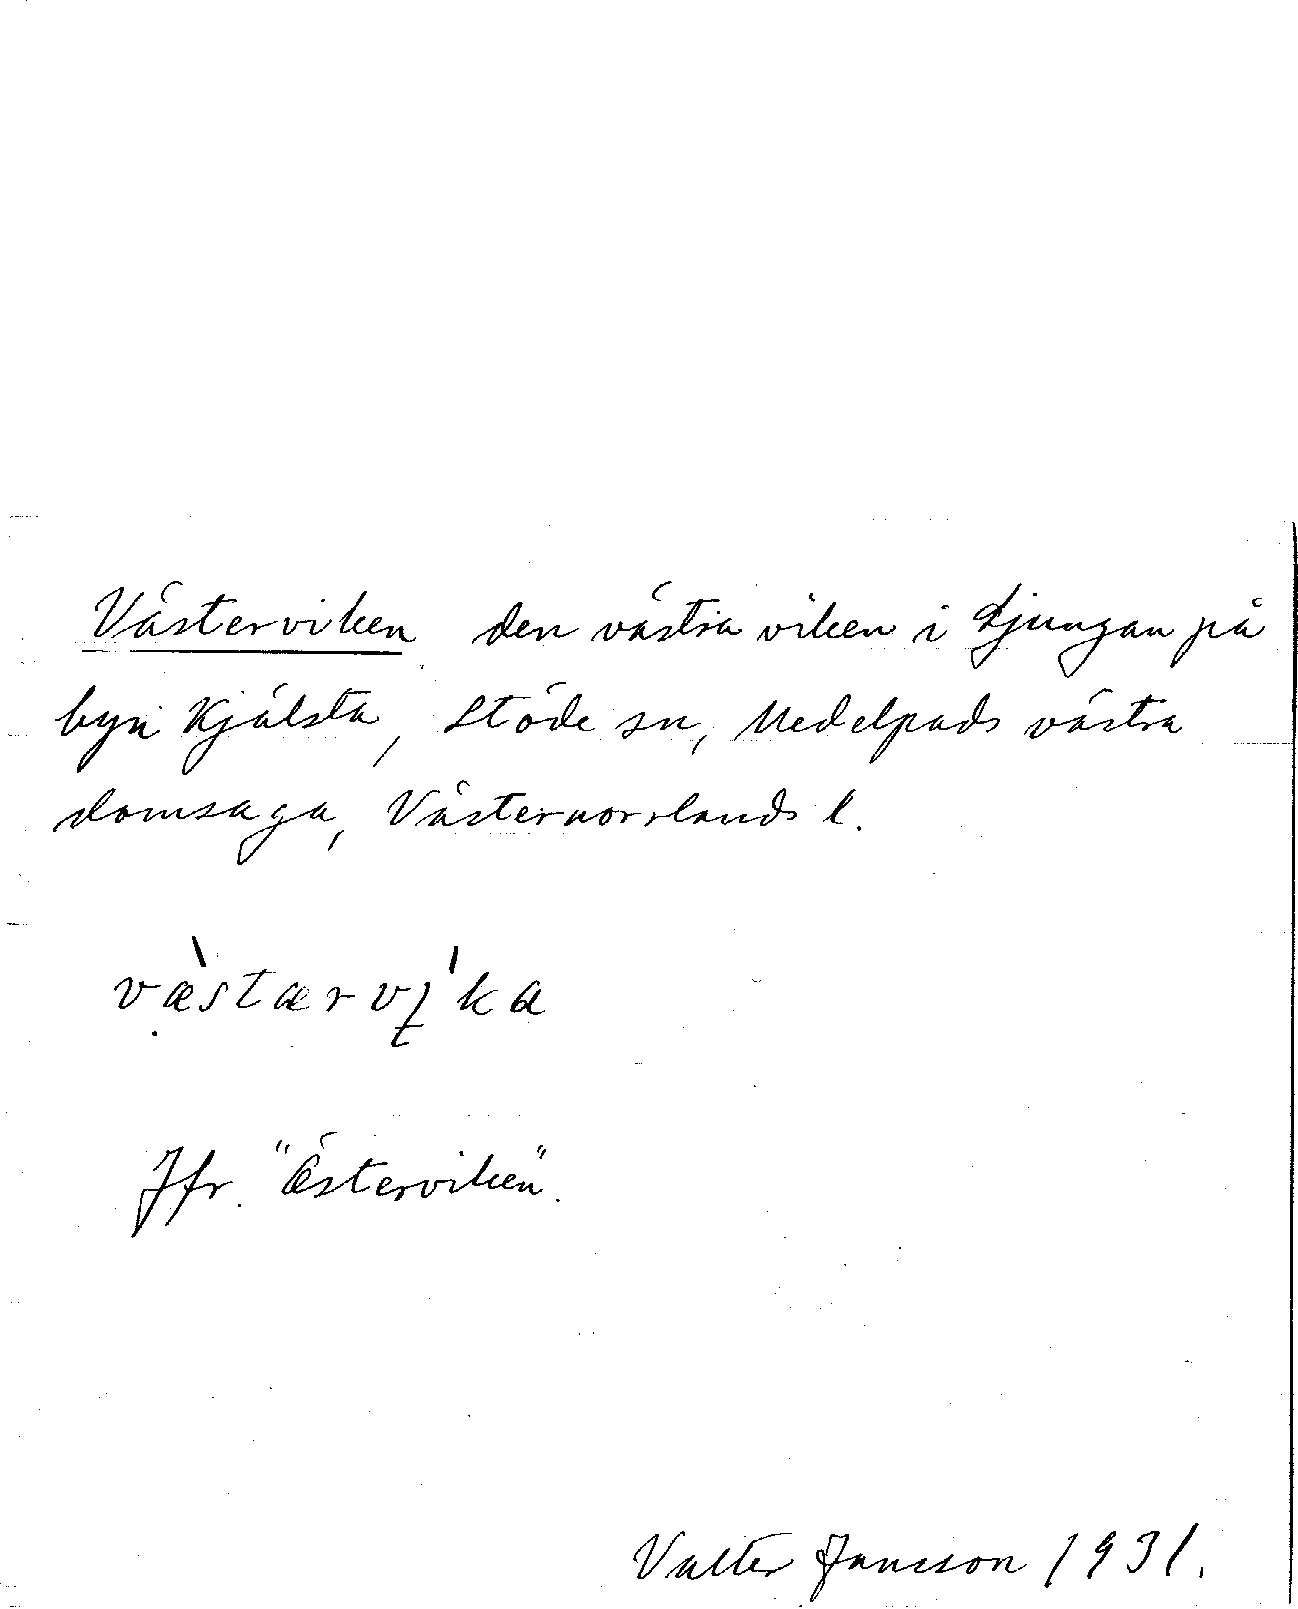 Västerviken den västra viken i Ljungan på
byn Kjälsta, Stöde sn, Medelpads västra
domsaga, Västernorrlands l.
væ̀stærvi̱ˈka
Jfr. "Österviken".
Valter Jansson 1931.